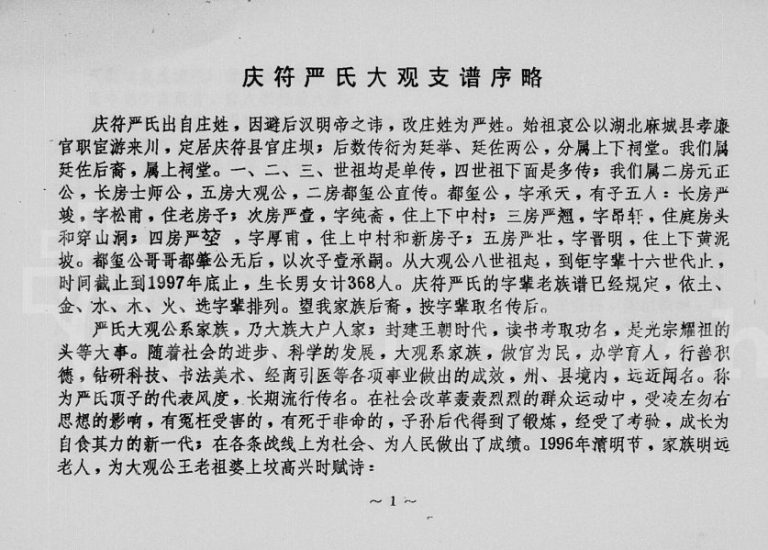 庆符严氏大观支谱序略
庆符严氏出自庄姓，因避后汉明帝之讳，改庄姓为严姓。始祖哀公以湖北麻城县孝廉
官职宦游来川，定居庆符县官庄坝；后数传衍为廷举、廷佐两公，分属上下祠堂。我们属
廷佐后裔，属上祠堂。一、二、三、世祖均是单传，四世祖下面是多传；我们属二房元正
公，长房士师公，五房大观公，二房都玺公直传。都玺公，字承天，有子五人：长房严
竣，字松甫，住老房子；次房严壹，字纯斋，住上下中村；三房严翘，字昂轩，住庭房头
和穿山洞；四房严堃，字厚甫，住上中村和新房子；五房严壮，字晋明，住上下黄泥
坡。都玺公哥哥都肇公无后，以次子壹承嗣。从大观公八世祖起，到钜字辈十六世代止，
时间截止到1997年底止，生长男女计368人。庆符严氏的字辈老族谱已经规定，依土、
金、水、木、火、选字辈排列。望我家族后裔，按字辈取名传后。
严氏大观公系家族，乃大族大户人家；封建王朝时代，读书考取功名，是光宗耀祖的
头等大事。随着社会的进步、科学的发展，大观系家族，做官为民，办学育人，行善积
德，钻研科技、书法美术、经商引医等各项事业做出的成效，州、县境内，远近闻名。称
为严氏顶子的代表风度，长期流行传名。在社会改革轰轰烈烈的群众运动中，受凌左勿右
思想的影响，有冤枉受害的，有死于非命的，子孙后代得到了锻炼，经受了考验，成长为
自食其力的新一代；在各条战线上为社会、为人民做出了成绩。1996年清明节，家族明远
老人，为大观公王老祖婆上坟高兴时赋诗：
～1～